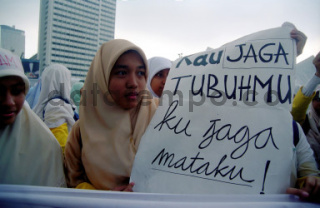 Kau JAGA
TUBUHMU
ku jaga
mataku !
datatempo.co